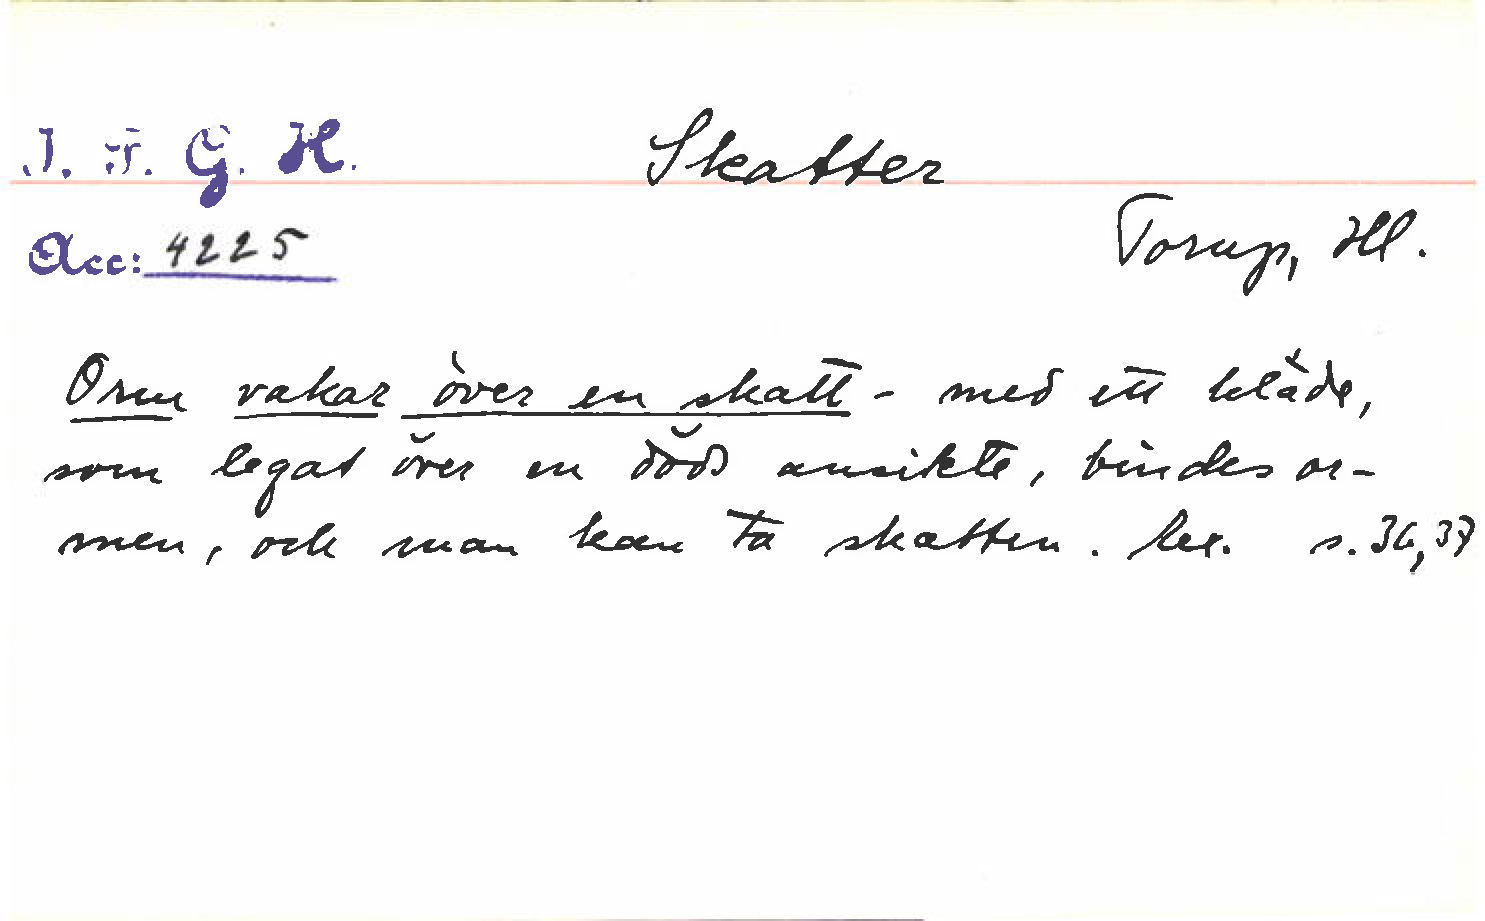 I. F. G. H. Skatter
Torup, Hl.
Acc: 4225
Orm vakar över en skatt - med ett kläde,
som legat över en döds ansikte, bindes or-
men, och man kan ta skatten. s. 36, 37